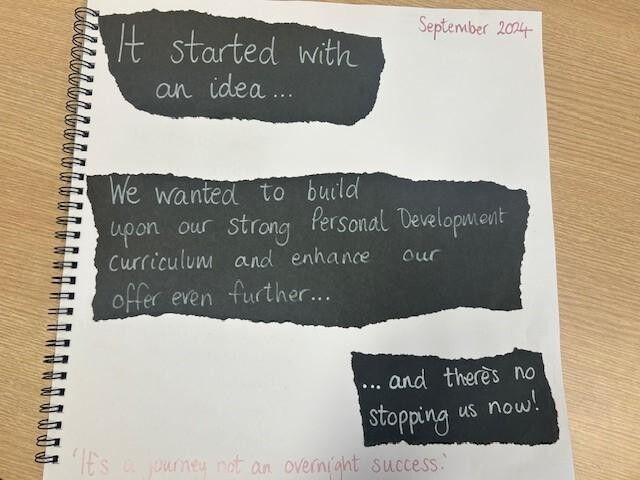 September 2024
It started with
an idea...
We wanted to build
upon our strong Personal Development
curriculum and enhance our
offer even further...
...and there's no
stopping us now!
'It's a journey not an overnight success.'